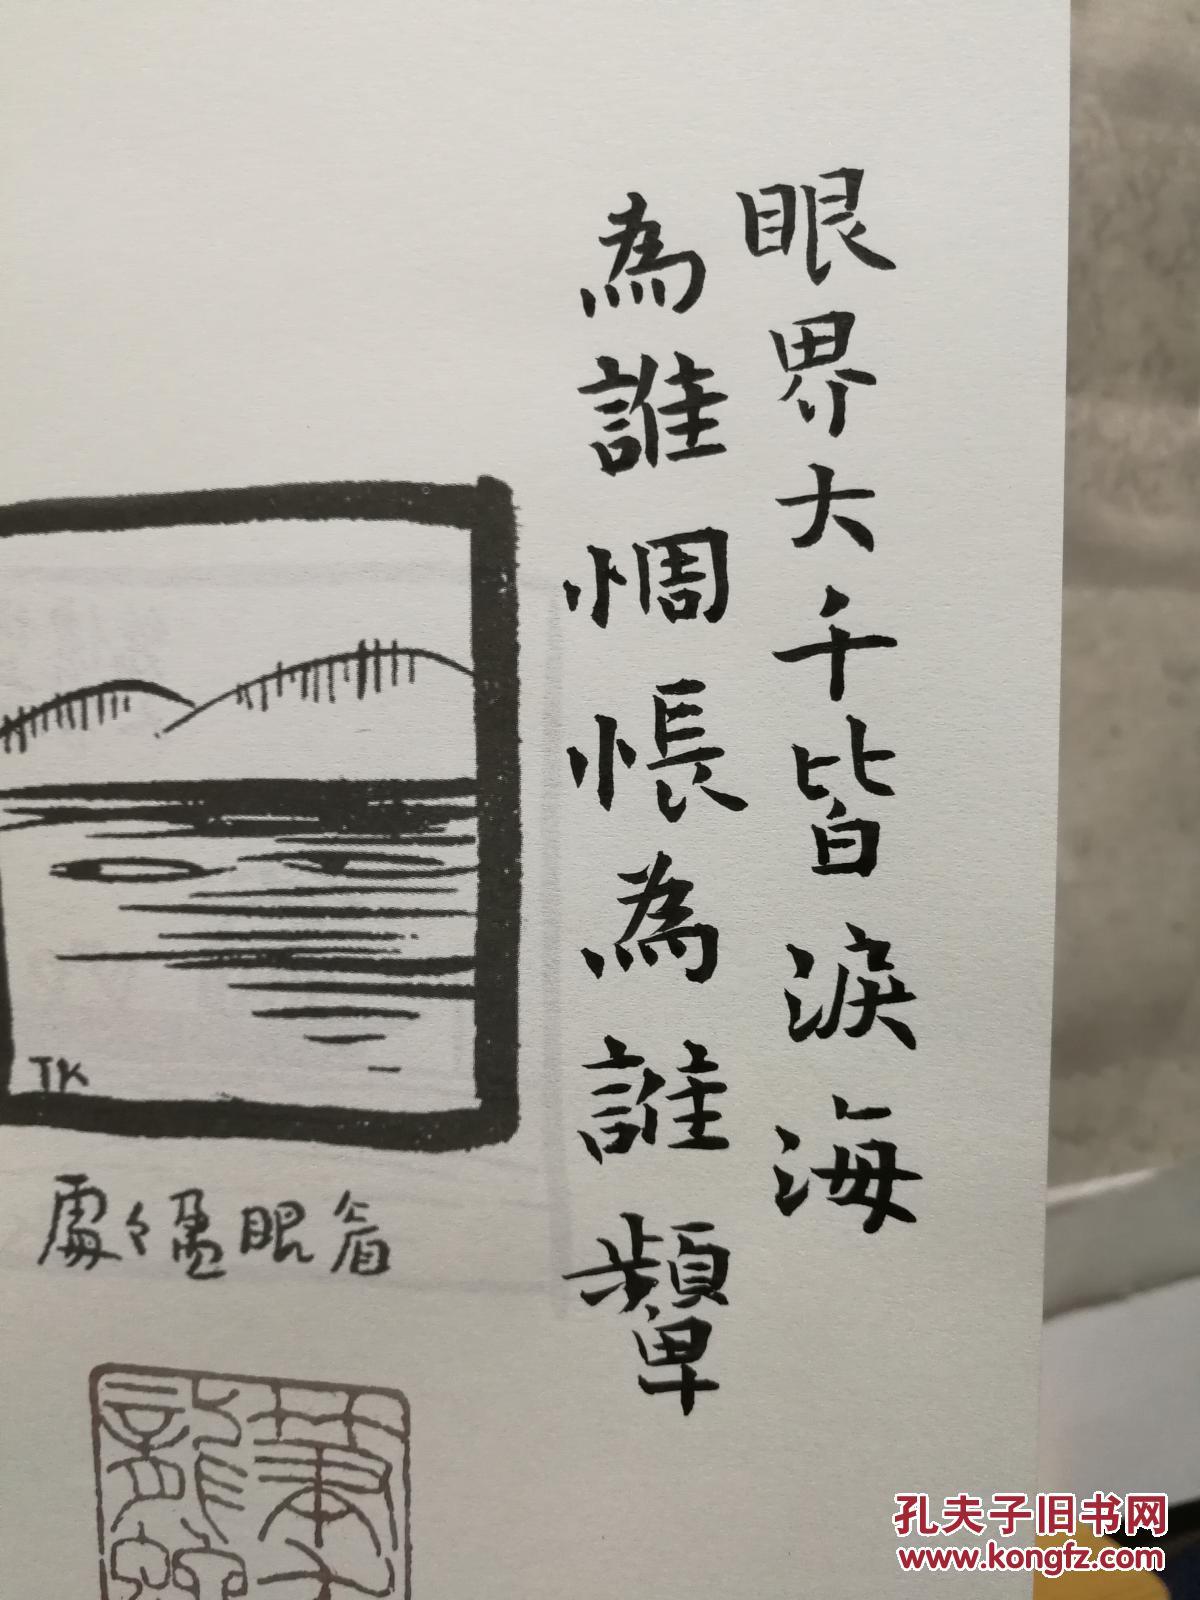 眼界大千皆淚海
為誰惆悵為誰顰
TK
眉眼盈々處
孔夫子旧书网
www.kongfz.com